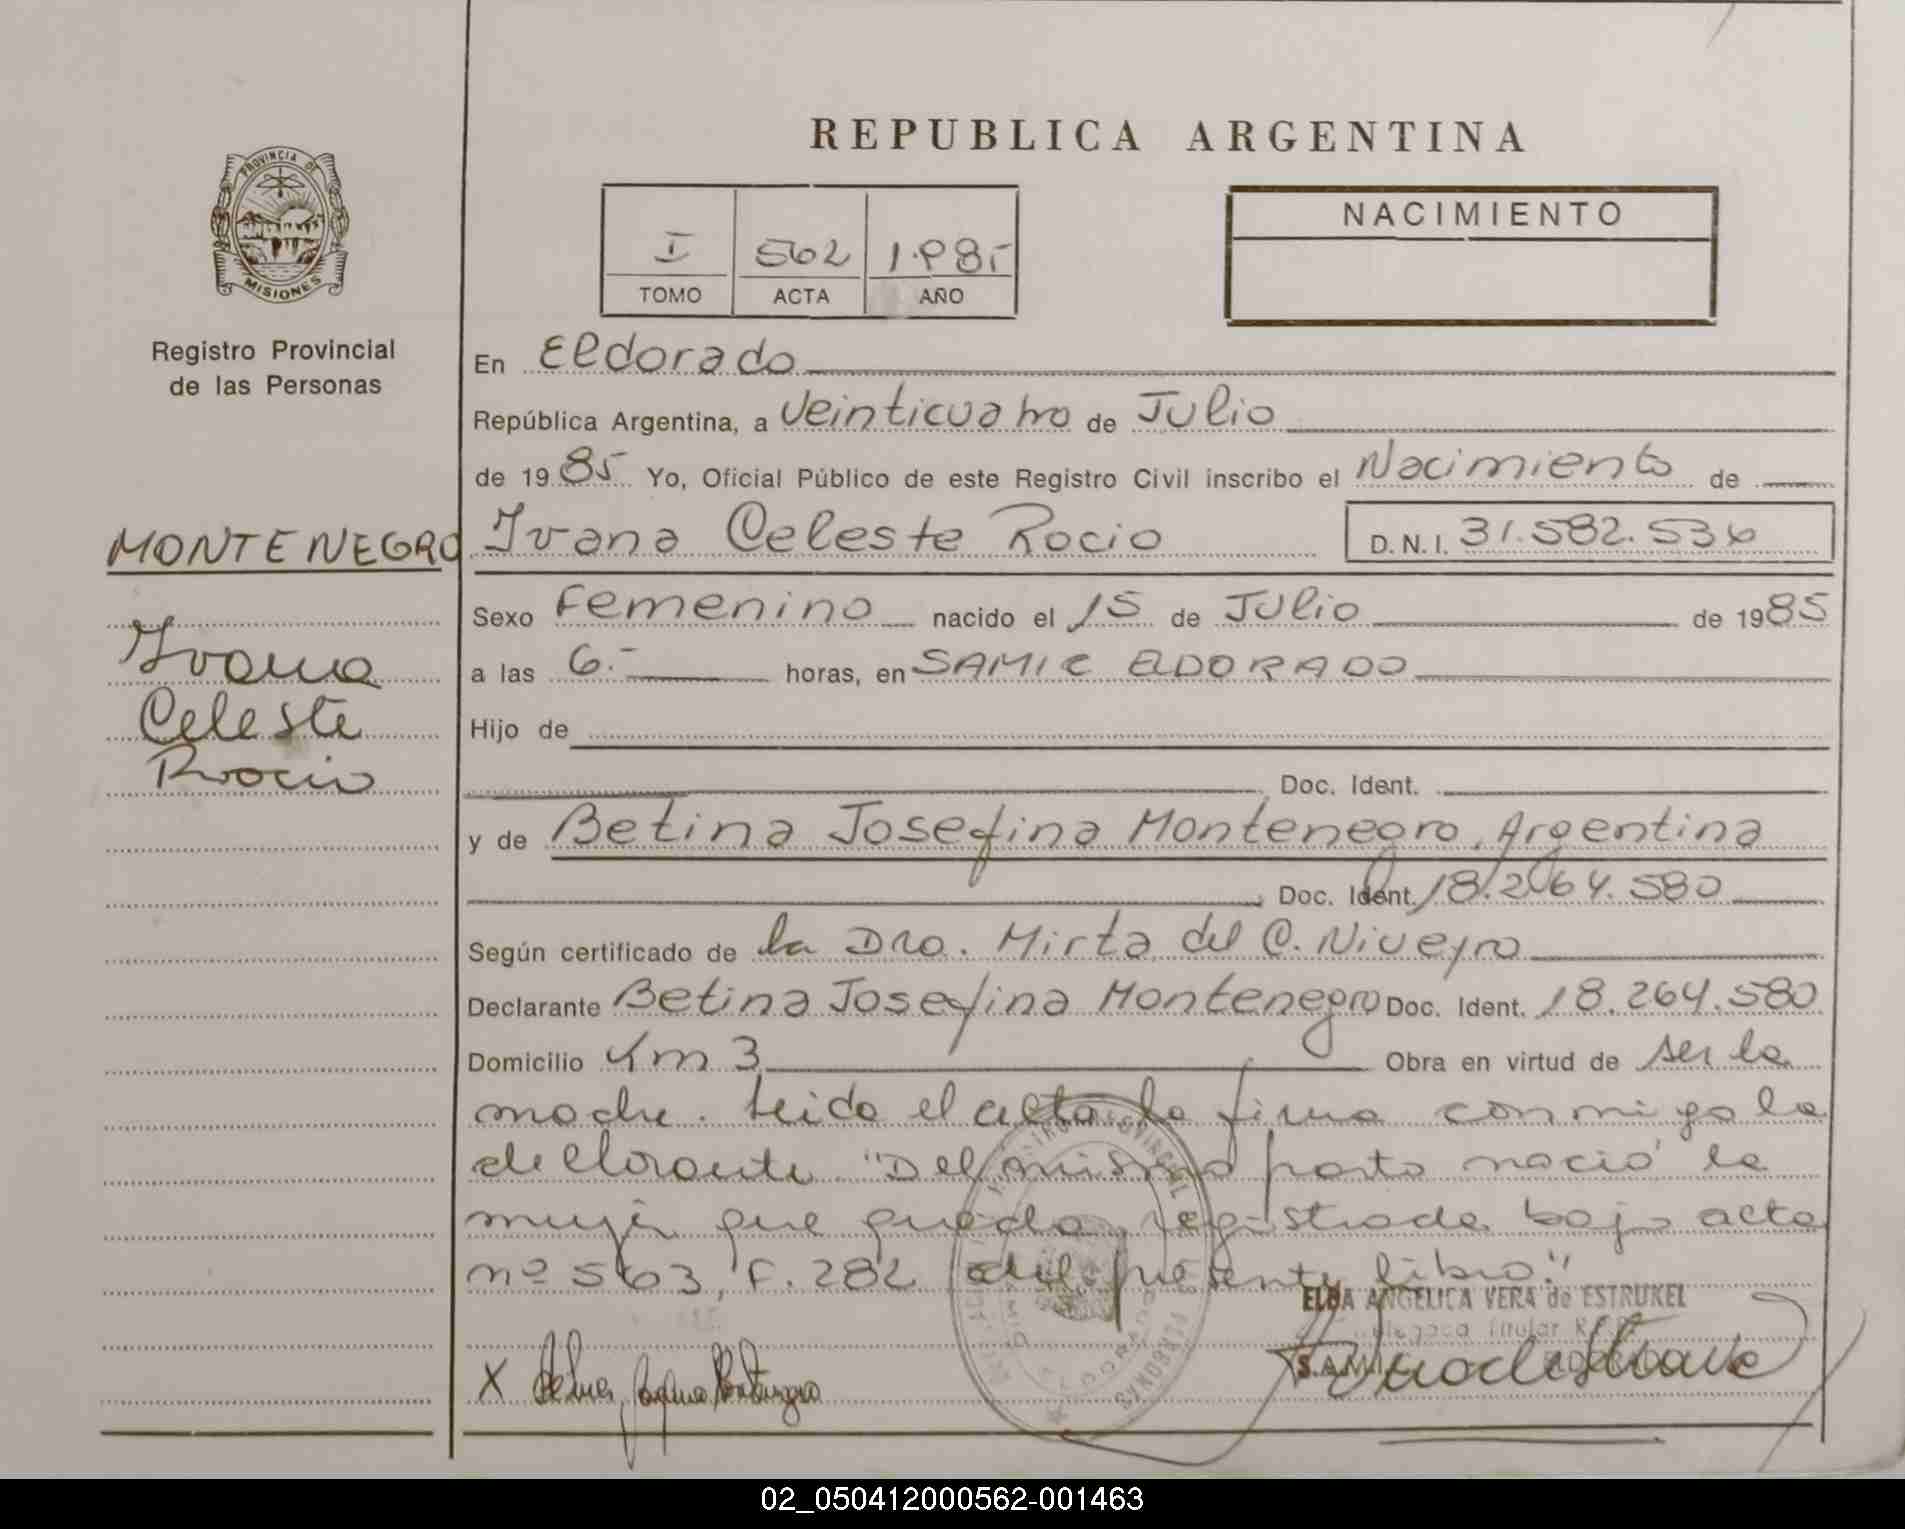 REPUBLICA ARGENTINA
PROVINCIA DE
MISIONES
Registro Provincial
de las Personas
I 562 1.985
TOMO ACTA AÑO
NACIMIENTO
En Eldorado
República Argentina, a Veinticuatro de Julio
de 1985 Yo, Oficial Público de este Registro Civil inscribo el Nacimiento de
MONTENEGRO
Ivana
Celeste
Rocio
Ivana Celeste Rocio D.N.I. 31.582.536
Sexo Femenino nacido el 15 de Julio de 1985
a las 6.- horas, en SAMIC ELDORADO
Hijo de
Doc. Ident.
y de Betina Josefina Montenegro, Argentina
Doc. Ident. 18.264.580
Según certificado de la Dra. Mirta del C. Niveyro
Declarante Betina Josefina Montenegro Doc. Ident. 18.264.580
Domicilio Km 3 Obra en virtud de ser la
madre. Leido el acta la firma conmigo la
declarante "Del mismo parto nació la
mujer que queda registrada bajo acta
nº 563, F. 282 del presente libro."
ELBA ANGELICA VERA de ESTRUKEL
Titular
X
02_050412000562-001463